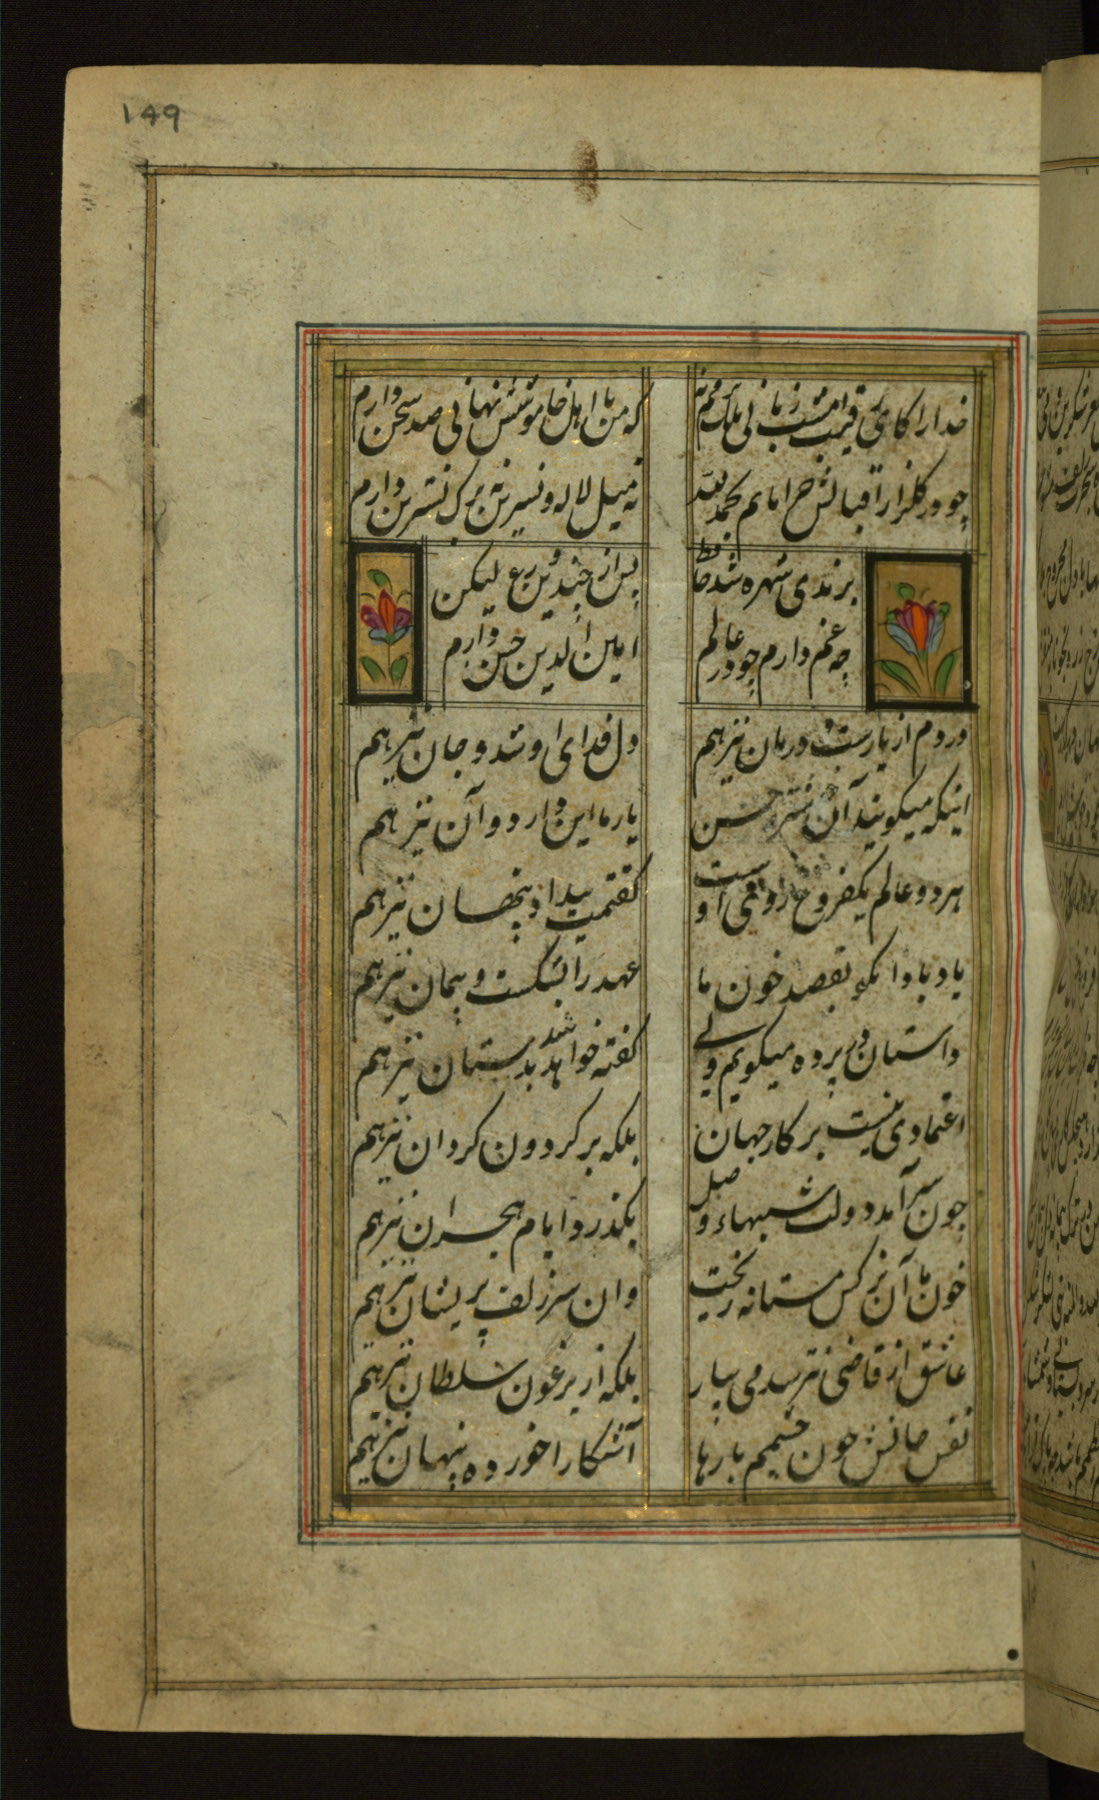 149
خدارا کای رقیب امشب زبانی
که من با اهل خاموشش نهانی صد سخن دارم
چو در کلزار اقبالش خرامانم بحمد الله
نه میل لاله و نسرین نه برک نسترن دارم
برندی شهره شد حافظ
پس از چندین ورع لیکن
چه غم دارم چو در عالم
امین الدین حسن دارم
دردم از یارست و درمان نیز هم
دل فدای او شد و جان نیز هم
اینکه میکویند آن خوشتر ز حسن
یار ما این دارد و آن نیز هم
هر دو عالم یکفروغ از روی اوست
کفتمت پیدا و پنهان نیز هم
یاد باد انکو بقصد خون ما
عهد را بشکست و پیمان نیز هم
داستان در پرده میکویم ولی
کفته خواهد شد بدستان نیز هم
اعتمادی نیست بر کار جهان
بلکه بر کردون کردان نیز هم
چون سرآمد دولت شبهاء وصل
بکذرد ایام هجران نیز هم
خون ما آن نرکس مستانه ریخت
وان سر زلف پریشان نیز هم
عاشق از قاضی نترسد می بیار
بلکه از یرغون سلطان نیز هم
آشکارا خورده پنهان نیز هم